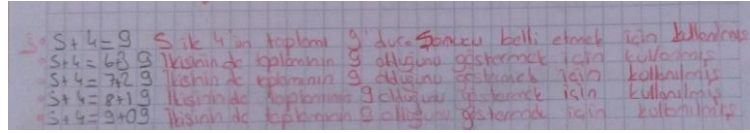 5+4=9 5 ile 4'ün toplamı 9'dur. Sonucu belli etmek için kullanılmış
5+4=6+3 9 İkisinin de toplamının 9 olduğunu göstermek için kullanılmış
5+4=7+2 9 İkisinin de toplamının 9 olduğunu göstermek için kullanılmış
5+4=8+1 9 İkisinin de toplamının 9 olduğunu göstermek için kullanılmış
5+4=9+0 9 İkisinin de toplamının 9 olduğunu göstermek için kullanılmış